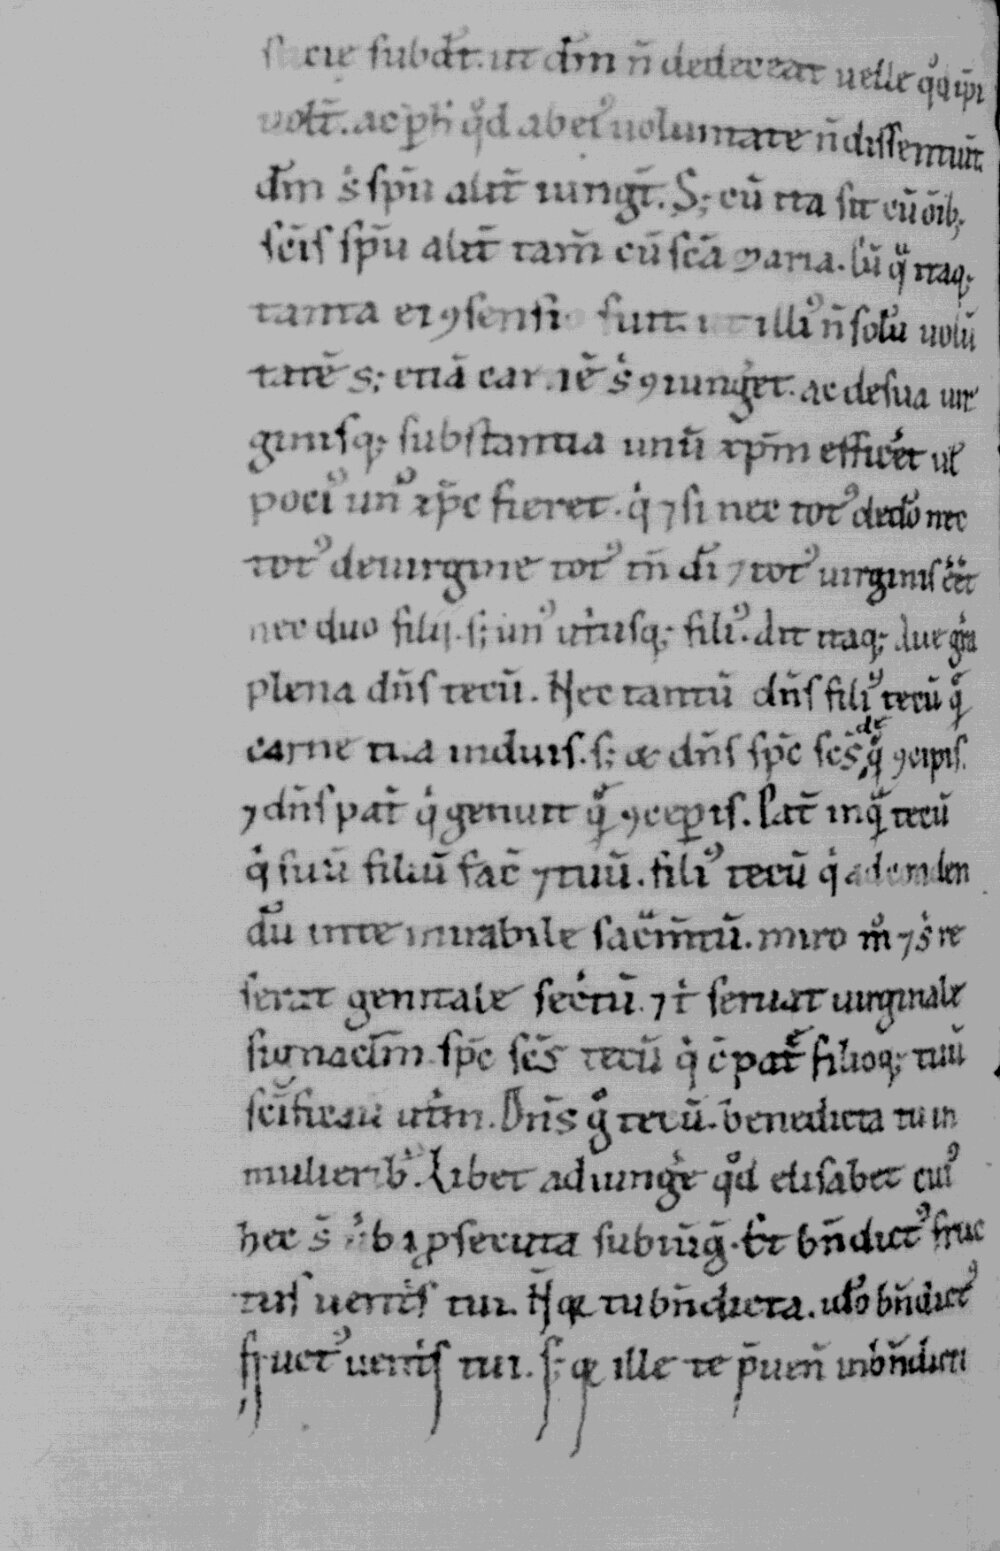 sticie subdt̄. ut dm̄ n̄ dedeceat uelle qͦd ip̄i
uolt̄. ac ꝑ h̄ qͦd ab eiꝰ uoluntate n̄ dissentiūt
dm̄ sⁱ sp̄u alit̄ iungt̄. S; cū ita sit cū oīb;
sc̄is sp̄u alit̄ tam̄ cū sc̄a maria. Cū qͣ itaq;
tanta ei ꝯsensio fuit. ut illiꝰ n̄ solū uolū
tatē s; etiā carnē sⁱ ꝯiungeret. ac de sua uir
ginisq; substantia unū xp̄m efficeret ul̄
pociꝰ unꝰ xp̄c fieret. qⁱ ⁊ si nec totꝰ de dō nec
totꝰ de uirgine totꝰ tn̄ di ⁊ totꝰ uirginis eēt
nec duo filii. s; unꝰ utⁱusq; filiꝰ. Ait itaq; Aue grā
plena dn̄s tecū. Nec tantū dn̄s filiꝰ tecū qͦ
carne tua induis. s; & dn̄s sp̄c sc̄s de qͦ ꝯcipis.
⁊ dn̄s pat̄ qⁱ genuit qͤ ꝯceperis. Pat̄ inqͣ tecū
qⁱ suū filiū fac̄ ⁊ tuū. filiꝰ tecū qⁱ ad conden
dū in te mirabile sacm̄tū. miro mͦ ⁊ sⁱ re
serat genitale secⁱtū. ⁊ tⁱ seruat uirginale
signaclm̄. sp̄c sc̄s tecū qⁱ c̄ patͤ filioq; tuū
sc̄ificau utm̄. Dn̄s gͦ tecū. benedicta tu in
mulieribꝰ. Libet adiungͤe qͦd elisabet cuiꝰ
hec s̄ ūba ꝓsecuta subiūg̅. Et bn̄dictꝰ fruc
tus uentⁱs tui. N̄ q& tu bn̄dicta. idō bn̄dictꝰ
fructꝰ uentⁱs tui. s; q& ille te p̄uen̄ in bn̄dicti